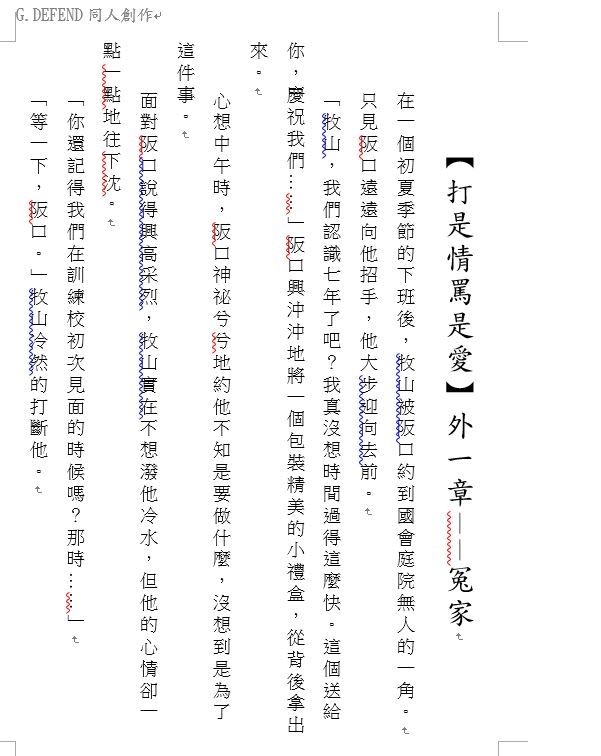 G. DEFEND 同人創作
【打是情罵是愛】外一章——冤家
在一個初夏季節的下班後，牧山被阪口約到國會庭院無人的一角。
只見阪口遠遠向他招手，他大步迎向去前。
「牧山，我們認識七年了吧？我真沒想時間過得這麼快。這個送給
你，慶祝我們……」阪口興沖沖地將一個包裝精美的小禮盒，從背後拿出
來。
心想中午時，阪口神祕兮兮地約他不知是要做什麼，沒想到是為了
這件事。
面對阪口說得興高采烈，牧山實在不想潑他冷水，但他的心情卻一
點一點地往下沈。
「你還記得我們在訓練校初次見面的時候嗎？那時……」
「等一下，阪口。」牧山冷然的打斷他。